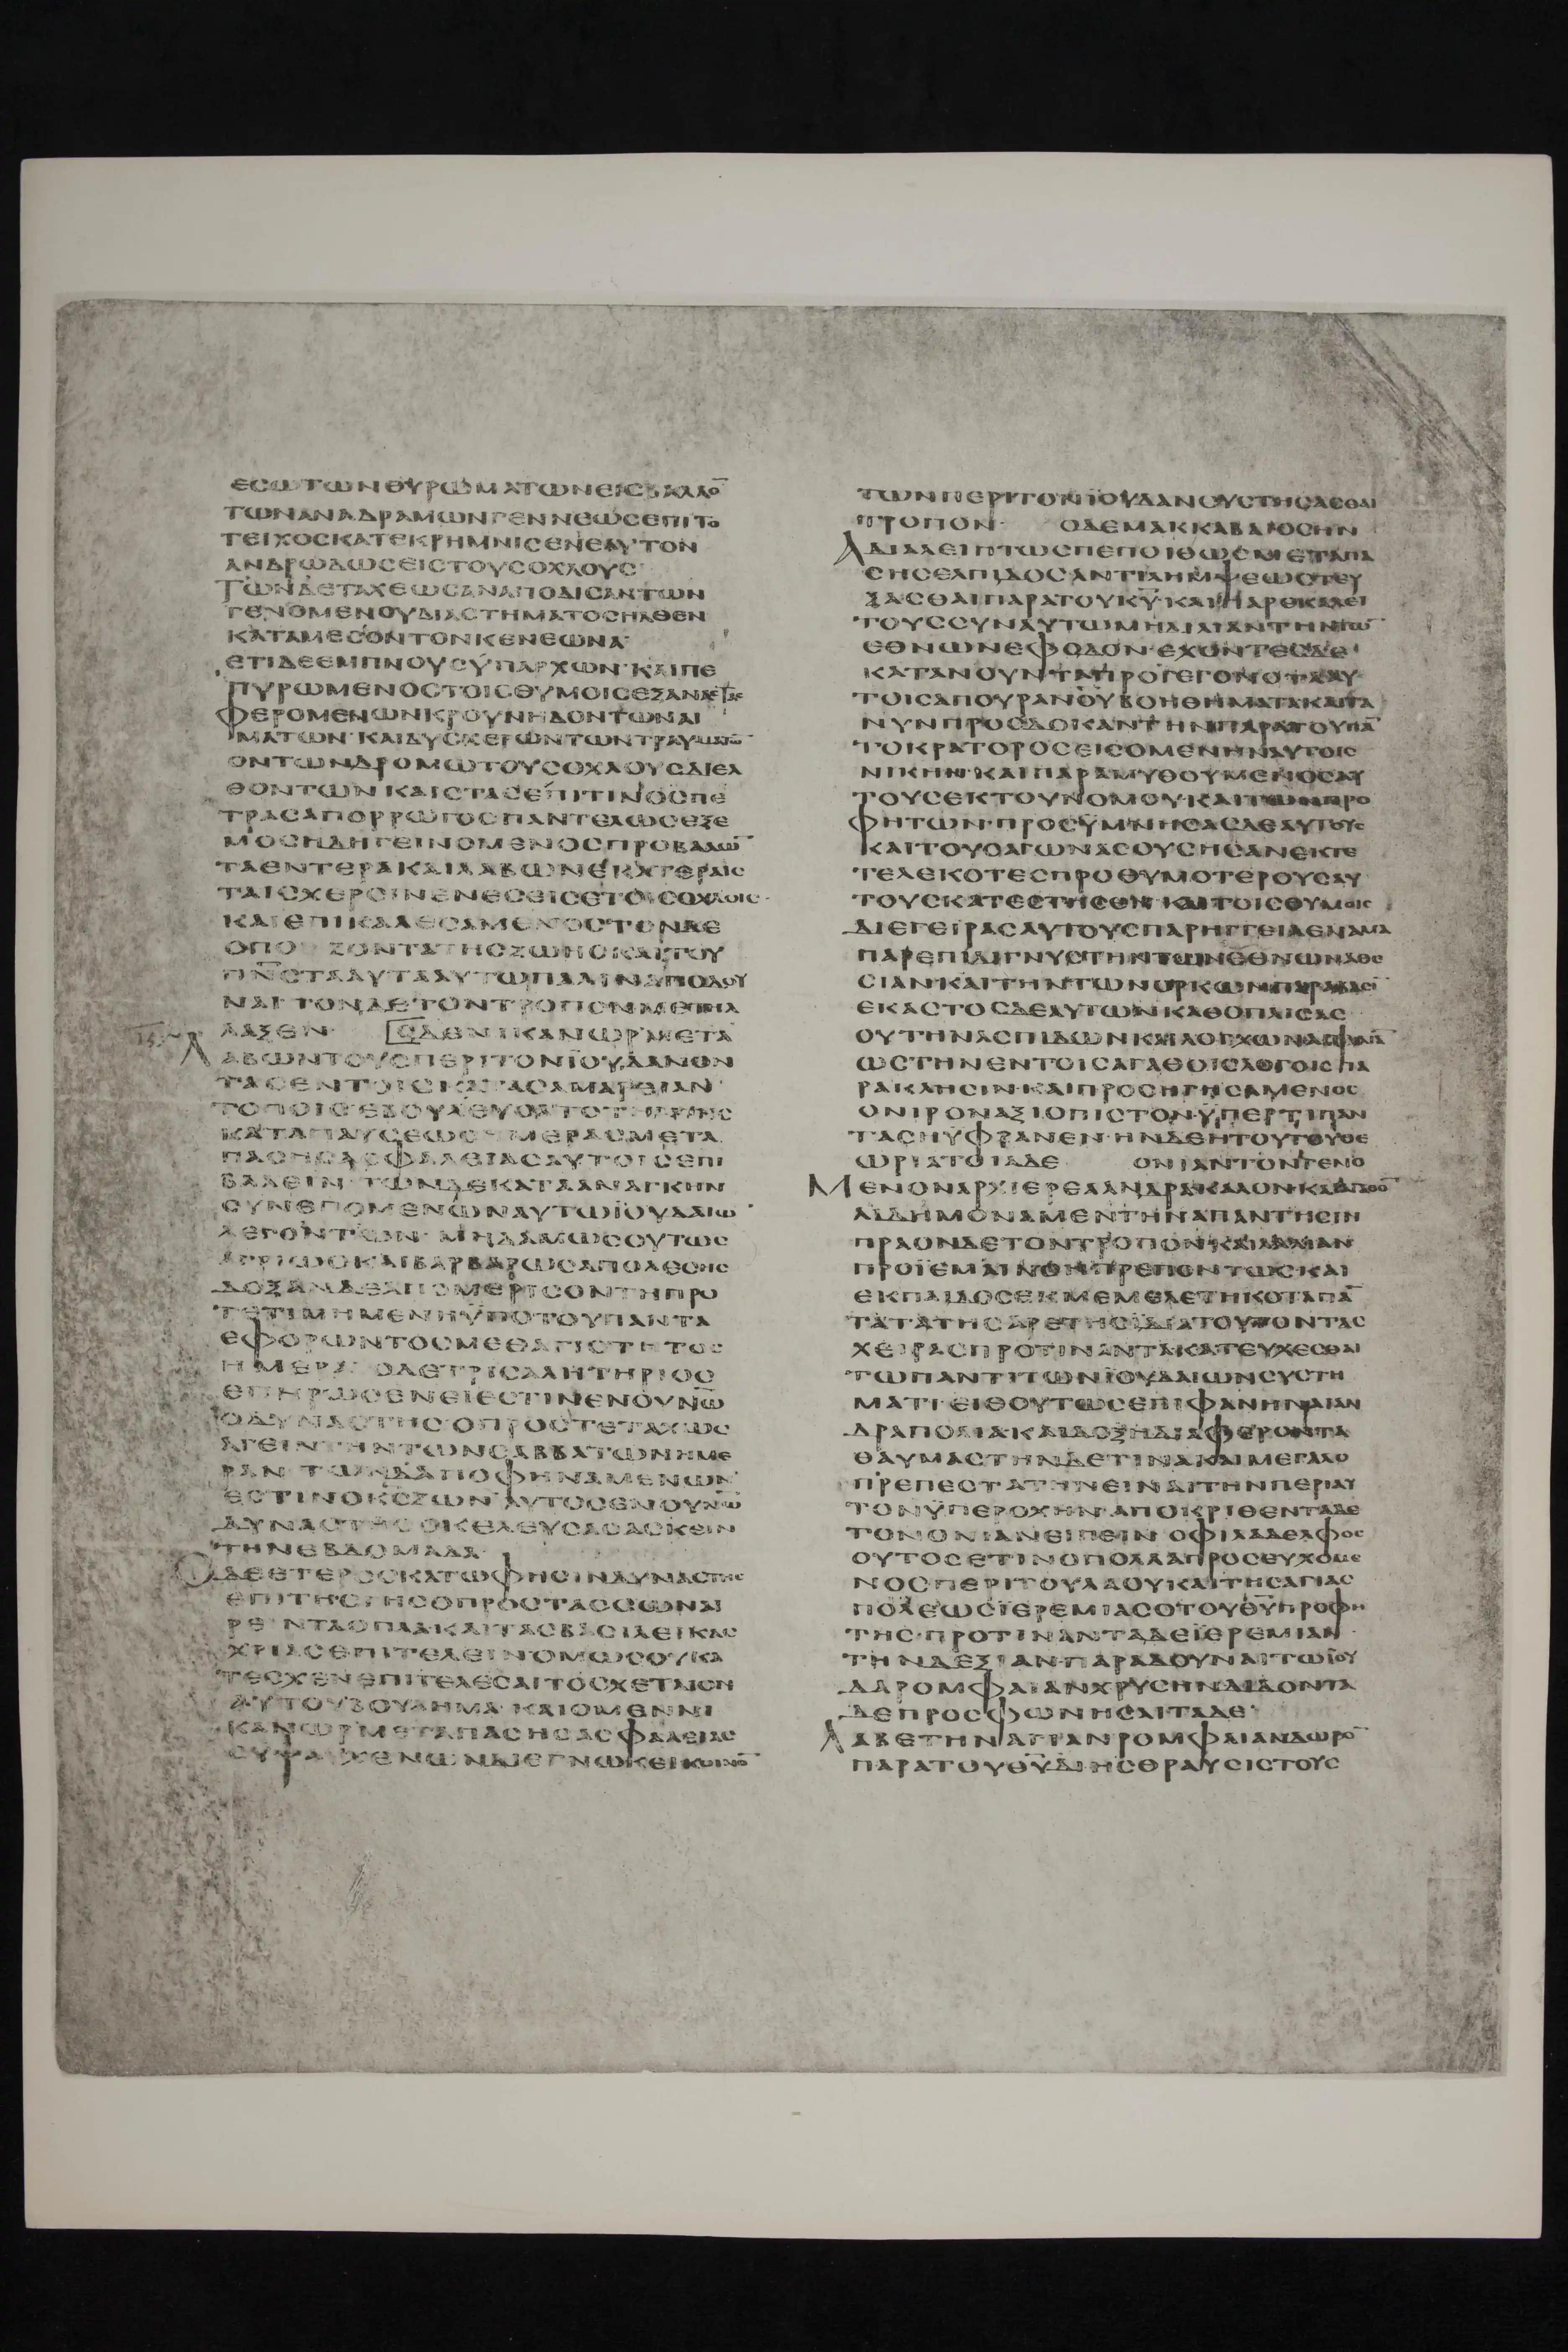 ΕϹΩΤΩΝΘΥΡΩΜΑΤΩΝΕΙϹΒΑΛΛΟ̅
ΤΩΝΑΝΑΔΡΑΜΩΝΓΕΝΝΕΩϹΕΠΙΤΟ
ΤΕΙΧΟϹΚΑΤΕΚΡΗΜΝΙϹΕΝΕΑΥΤΟΝ
ΑΝΔΡΩΔΩϹΕΙϹΤΟΥϹΟΧΛΟΥϹ
ΤΩΝΔΕΤΑΧΕΩϹΑΝΑΠΟΔΙϹΑΝΤΩΝ
ΓΕΝΟΜΕΝΟΥΔΙΑϹΤΗΜΑΤΟϹΗΛΘΕΝ
ΚΑΤΑΜΕϹΟΝΤΟΝΚΕΝΕΩΝΑ
ΕΤΙΔΕΕΜΠΝΟΥϹΫΠΑΡΧΩΝ·ΚΑΙΠΕ
ΠΥΡΩΜΕΝΟϹΤΟΙϹΘΥΜΟΙϹΕΞΑΝΑϹΤΑϹ
ΦΕΡΟΜΕΝΩΝΚΡΟΥΝΗΔΟΝΤΩΝΑΙ
ΜΑΤΩΝ·ΚΑΙΔΥϹΧΕΡΩΝΤΩΝΤΡΑΥΜΑΤΩ̅
ΟΝΤΩΝΔΡΟΜΩΤΟΥϹΟΧΛΟΥϹΔΙΕΛ
ΘΟΝΤΩΝ ΚΑΙϹΤΑϹΕΠΙΤΙΝΟϹΠΕ
ΤΡΑϹΑΠΟΡΡΩΓΟϹΠΑΝΤΕΛΩϹΕΞΕ
ΜΟϹΗΔΗΓΕΙΝΟΜΕΝΟϹΠΡΟΒΑΛΩ̅
ΤΑΕΝΤΕΡΑΚΑΙΛΑΒΩΝΕΚΑΤΕΡΑΙϹ
ΤΑΙϹΧΕΡϹΙΝΕΝΕϹΕΙϹΕΤΟΙϹΟΧΛΟΙϹ·
ΚΑΙΕΠΙΚΑΛΕϹΑΜΕΝΟϹΤΟΝΔΕ
ϹΠΟ ΖΟΝΤΑΤΗϹΖΩΗϹΚΑΙΤΟΥ
Π̅Ν̅Ϲ̅ΤΑΑΥΤΑΑΥΤΩΠΑΛΙΝΑΠΟΔΟΥ
ΝΑΙ ΤΟΝΔΕΤΟΝΤΡΟΠΟΝΜΕΤΗΛ
ΛΑΞΕΝ· ΟΔΕΝΙΚΑΝΩΡΜΕΤΑ
ΛΑΒΩΝΤΟΥϹΠΕΡΙΤΟΝΪΟΥΔΑΝΟΝ
ΤΑϹΕΝΤΟΙϹΚΑΤΑϹΑΜΑΡΕΙΑΝ
ΤΟΠΟΙϹΕΒΟΥΛΕΥΟΝΤΟΤΗΤΗϹ
ΚΑΤΑΠΑΥϹΕΩϹΗΜΕΡΑϹΜΕΤΑ
ΠΑϹΗϹΑϹΦΑΛΕΙΑϹΑΥΤΟΙϹΕΠΙ
ΒΑΛΕΙΝ·ΤΩΝΔΕΚΑΤΑΑΝΑΓΚΗΝ
ϹΥΝΕΠΟΜΕΝΩΝΑΥΤΩΪΟΥΔΑΙΩ̅
ΛΕΓΟΝΤΩΝ·ΜΗΔΑΜΩϹΟΥΤΩϹ
ΑΓΡΙΩϹΚΑΙΒΑΡΒΑΡΩϹΑΠΟΛΕϹΗϹ
ΔΟΞΑΝΔΕΑΠΟΜΕΡΙϹΟΝΤΗΠΡΟ
ΤΕΤΙΜΗΜΕΝΗΫΠΟΤΟΥΠΑΝΤΑ
ΕΦΟΡΩΝΤΟϹΜΕΘΑΓΙΟΤΗΤΟϹ
ΗΜΕΡΑ· ΟΔΕΤΡΙϹΑΛΗΤΗΡΙΟϹ
ΕΠΗΡΩϹΕΝΕΙΕϹΤΙΝΕΝΟΥΝΩ̅
ΟΔΥΝΑϹΤΗϹ·ΟΠΡΟϹΤΕΤΑΧΩϹ
ΑΓΕΙΝΤΗΝΤΩΝϹΑΒΒΑΤΩΝΗΜΕ
ΡΑΝ·ΤΩΝΔΑΠΟΦΗΝΑΜΕΝΩΝ·
ΕϹΤΙΝΟΚ̅Ϲ̅ΖΩΝ·ΑΥΤΟϹΕΝΟΥΝΩ̅
ΔΥΝΑϹΤΗϹ·ΟΚΕΛΕΥϹΑϹΑϹΚΕΙΝ
ΤΗΝΕΒΔΟΜΑΔΑ·
ΟΔΕΕΤΕΡΟϹΚΑΤΩΦΗϹΙΝΔΥΝΑϹΤΗϹ
ΕΠΙΤΗϹΓΗϹΟΠΡΟϹΤΑϹϹΩΝΑΙ
ΡΕΙΝΤΑΟΠΛΑΚΑΙΤΑϹΒΑϹΙΛΕΙΚΑϹ
ΧΡΙΑϹΕΠΙΤΕΛΕΙΝΟΜΩϹΟΥΚΑ
ΤΕϹΧΕΝΕΠΙΤΕΛΕϹΑΙΤΟϹΧΕΤΛΙΟΝ
ΑΥΤΟΥΒΟΥΛΗΜΑ·ΚΑΙΟΜΕΝΝΙ
ΚΑΝΩΡΜΕΤΑΠΑϹΗϹΑϹΦΑΛΕΙΑϹ
ϹΥΨΑΥΧΕΝΩΝΔΙΕΓΝΩΚΕΙΚΟΙΝΟ̅
ΤΩΝΠΕΡΙΤΟΝΪΟΥΔΑΝϹΥϹΤΗϹΑϹΘΑΙ
ΤΡΟΠΟΝ· ΟΔΕΜΑΚΚΑΒΑΙΟϹΗΝ
ΑΔΙΑΛΕΙΠΤΩϹΠΕΠΟΙΘΩϹΜΕΤΑΠΑ
ϹΗϹΕΛΠΙΔΟϹΑΝΤΙΛΗΜΨΕΩϹΤΕΥ
ΞΑϹΘΑΙΠΑΡΑΤΟΥΚ̅Υ̅·ΚΑΙΠΑΡΕΚΑΛΕΙ
ΤΟΥϹϹΥΝΑΥΤΩΜΗΔΙΛΙΑΝΤΗΝΤΩ̅
ΕΘΝΩΝΕΦΟΔΟΝ·ΕΧΟΝΤΕϹΔΕ
ΚΑΤΑΝΟΥΝΤΑΠΡΟΓΕΓΟΝΟΤΑΑΥ
ΤΟΙϹΑΠΟΥΡΑΝΟΥΒΟΗΘΗΜΑΤΑΚΑΙΤΑ
ΝΥΝΠΡΟϹΔΟΚΑΝΤΗΝΠΑΡΑΤΟΥΠΑ̅
ΤΟΚΡΑΤΟΡΟϹΕΙϹΟΜΕΝΗΝΑΥΤΟΙϹ
ΝΙΚΗΝ·ΚΑΙΠΑΡΑΜΥΘΟΥΜΕΝΟϹΑΥ
ΤΟΥϹΕΚΤΟΥΝΟΜΟΥ·ΚΑΙΤΩΝΠΡΟ
ΦΗΤΩΝ·ΠΡΟϹΫΜΝΗϹΑϹΔΕΑΥΤΟΥϹ
ΚΑΙΤΟΥϹΑΓΩΝΑϹΟΥϹΗϹΑΝΕΚΤΕ
ΤΕΛΕΚΟΤΕϹΠΡΟΘΥΜΟΤΕΡΟΥϹΑΥ
ΤΟΥϹΚΑΤΕϹΤΗϹΕΝ·ΚΑΙΤΟΙϹΘΥΜΟΙϹ
ΔΙΕΓΕΙΡΑϹΑΥΤΟΥϹΠΑΡΗΓΓΕΙΛΕΝΑΜΑ
ΠΑΡΕΠΙΔΙΓΝΥϹΤΗΝΤΩΝΕΘΝΩΝΑΘΕ
ϹΙΑΝΚΑΙΤΗΝΤΩΝΟΡΚΩΝΠΑΡΑΒΑϹΙ̅
ΕΚΑϹΤΟϹΔΕΑΥΤΩΝΚΑΘΟΠΛΙϹΑϹ
ΟΥΤΗΝΑϹΠΙΔΩΝΚΑΙΛΟΓΧΩΝΑϹΦΑΛΙΑ̅
ΩϹΤΗΝΕΝΤΟΙϹΑΓΑΘΟΙϹΛΟΓΟΙϹΠΑ
ΡΑΚΛΗϹΙΝ·ΚΑΙΠΡΟϹΗΓΗϹΑΜΕΝΟϹ
ΟΝΙΡΟΝΑΞΙΟΠΙϹΤΟΝ·ΫΠΕΡΤΙΠΑΝ
ΤΑϹΗΥΦΡΑΝΕΝ·ΗΝΔΕΗΤΟΥΤΟΥΘΕ
ΩΡΙΑΤΟΙΑΔΕ ΟΝΙΑΝΤΟΝΓΕΝΟ
ΜΕΝΟΝΑΡΧΙΕΡΕΑΑΝΔΡΑΚΑΛΟΝΚΑΓΑΘΟ̅
ΑΙΔΗΜΟΝΑΜΕΝΤΗΝΑΠΑΝΤΗϹΙΝ
ΠΡΑΟΝΔΕΤΟΝΤΡΟΠΟΝ·ΚΑΙΛΑΛΙΑΝ
ΠΡΟΪΕΜΑΙΝΟΝΠΡΕΠΟΝΤΩϹΚΑΙ
ΕΚΠΑΙΔΟϹΕΚΜΕΜΕΛΕΤΗΚΟΤΑΠΑ̅
ΤΑΤΑΤΗϹΑΡΕΤΗϹΪΔΙΑΤΟΥΤΟΝΤΑϹ
ΧΕΙΡΑϹΠΡΟΤΙΝΑΝΤΑΚΑΤΕΥΧΕϹΘΑΙ
ΤΩΠΑΝΤΙΤΩΝΪΟΥΔΑΙΩΝϹΥϹΤΗ
ΜΑΤΙ·ΕΙΘΟΥΤΩϹΕΠΙΦΑΝΗΝΑΙΑΝ
ΔΡΑΠΟΛΙΑΚΑΙΔΟΞΗΔΙΑΦΕΡΟΝΤΑ
ΘΑΥΜΑϹΤΗΝΔΕΤΙΝΑΚΑΙΜΕΓΑΛΟ
ΠΡΕΠΕϹΤΑΤΗΝΕΙΝΑΙΤΗΝΠΕΡΙΑΥ
ΤΟΝΫΠΕΡΟΧΗΝ·ΑΠΟΚΡΙΘΕΝΤΑΔΕ
ΤΟΝΟΝΙΑΝΕΙΠΕΙΝ·ΟΦΙΛΑΔΕΛΦΟϹ
ΟΥΤΟϹΕΤΙΝΟΠΟΛΛΑΠΡΟϹΕΥΧΟΜΕ
ΝΟϹΠΕΡΙΤΟΥΛΑΟΥΚΑΙΤΗϹΑΓΙΑϹ
ΠΟΛΕΩϹΪΕΡΕΜΙΑϹΟΤΟΥΘ̅Υ̅ΠΡΟΦΗ
ΤΗϹ·ΠΡΟΤΙΝΑΝΤΑΔΕΪΕΡΕΜΙΑΝ
ΤΗΝΔΕΞΙΑΝΠΑΡΑΔΟΥΝΑΙΤΩΪΟΥ
ΔΑΡΟΜΦΑΙΑΝΧΡΥϹΗΝΔΙΔΟΝΤΑ
ΔΕΠΡΟϹΦΩΝΗϹΑΙΤΑΔΕ·
ΛΑΒΕΤΗΝΑΓΙΑΝΡΟΜΦΑΙΑΝΔΩΡΟ̅
ΠΑΡΑΤΟΥΘ̅Υ̅ΔΙΗϹΘΡΑΥϹΙϹΤΟΥϹ